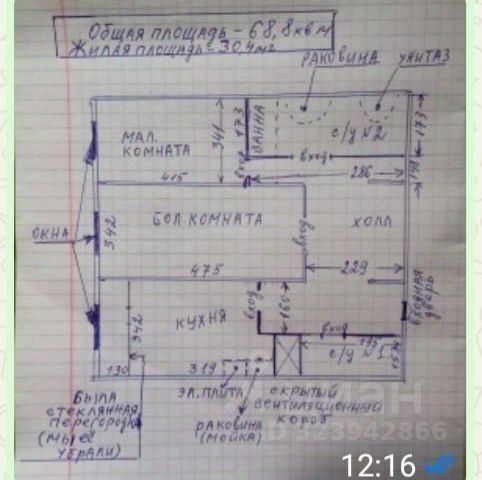 Общая площадь - 68,8 кв м
Жилая площадь - 30,4 м2
РАКОВИНА
УНИТАЗ
МАЛ.
КОМНАТА
341
173
ВАННА
с/у №2
173
вход
вход
148
415
286
ОКНА
342
БОЛ. КОМНАТА
вход
ХОЛЛ
475
229
ВХОДНАЯ
ДВЕРЬ
342
КУХНЯ
вход
160
вход
195
с/у №1
157
130
319
БЫЛА
СТЕКЛЯННАЯ
ПЕРЕГОРОДКА
(МЫ ЕЁ
УБРАЛИ)
ЭЛ. ПЛИТА
РАКОВИНА
(МОЙКА)
СКРЫТЫЙ
ВЕНТИЛЯЦИОННЫЙ
КОРОБ
ID 323942866
12:16